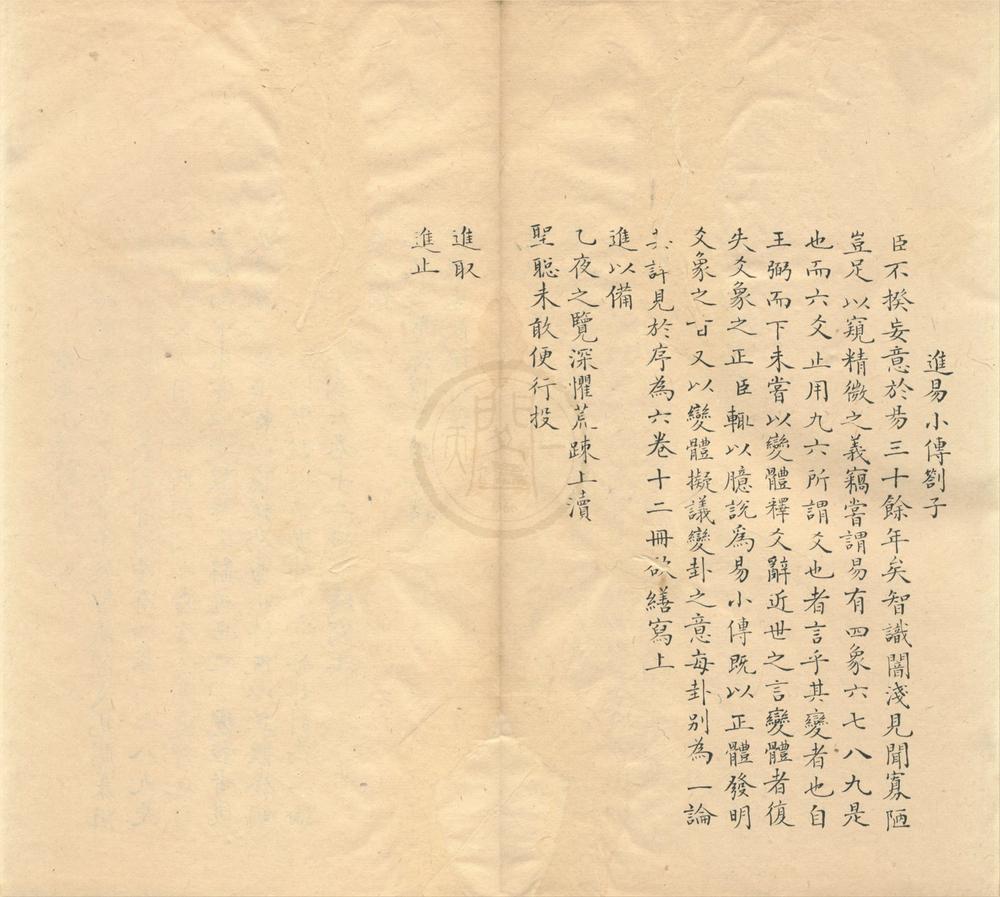 進易小傳劄子
臣不揆妄意於易三十餘年矣智識闇淺見聞寡陋
豈足以窺精微之義竊嘗謂易有四象六七八九是
也而六爻止用九六所謂爻也者言乎其變者也自
王弼而下未嘗以變體釋爻辭近世之言變體者復
失爻象之正臣輒以臆說爲易小傳既以正體發明
爻象之旨又以變體擬議變卦之意每卦别為一論
詳見於序為六卷十二冊欲繕寫上
進以備
乙夜之覽深懼荒疎上瀆
聖聰未敢便行投
進取
進止